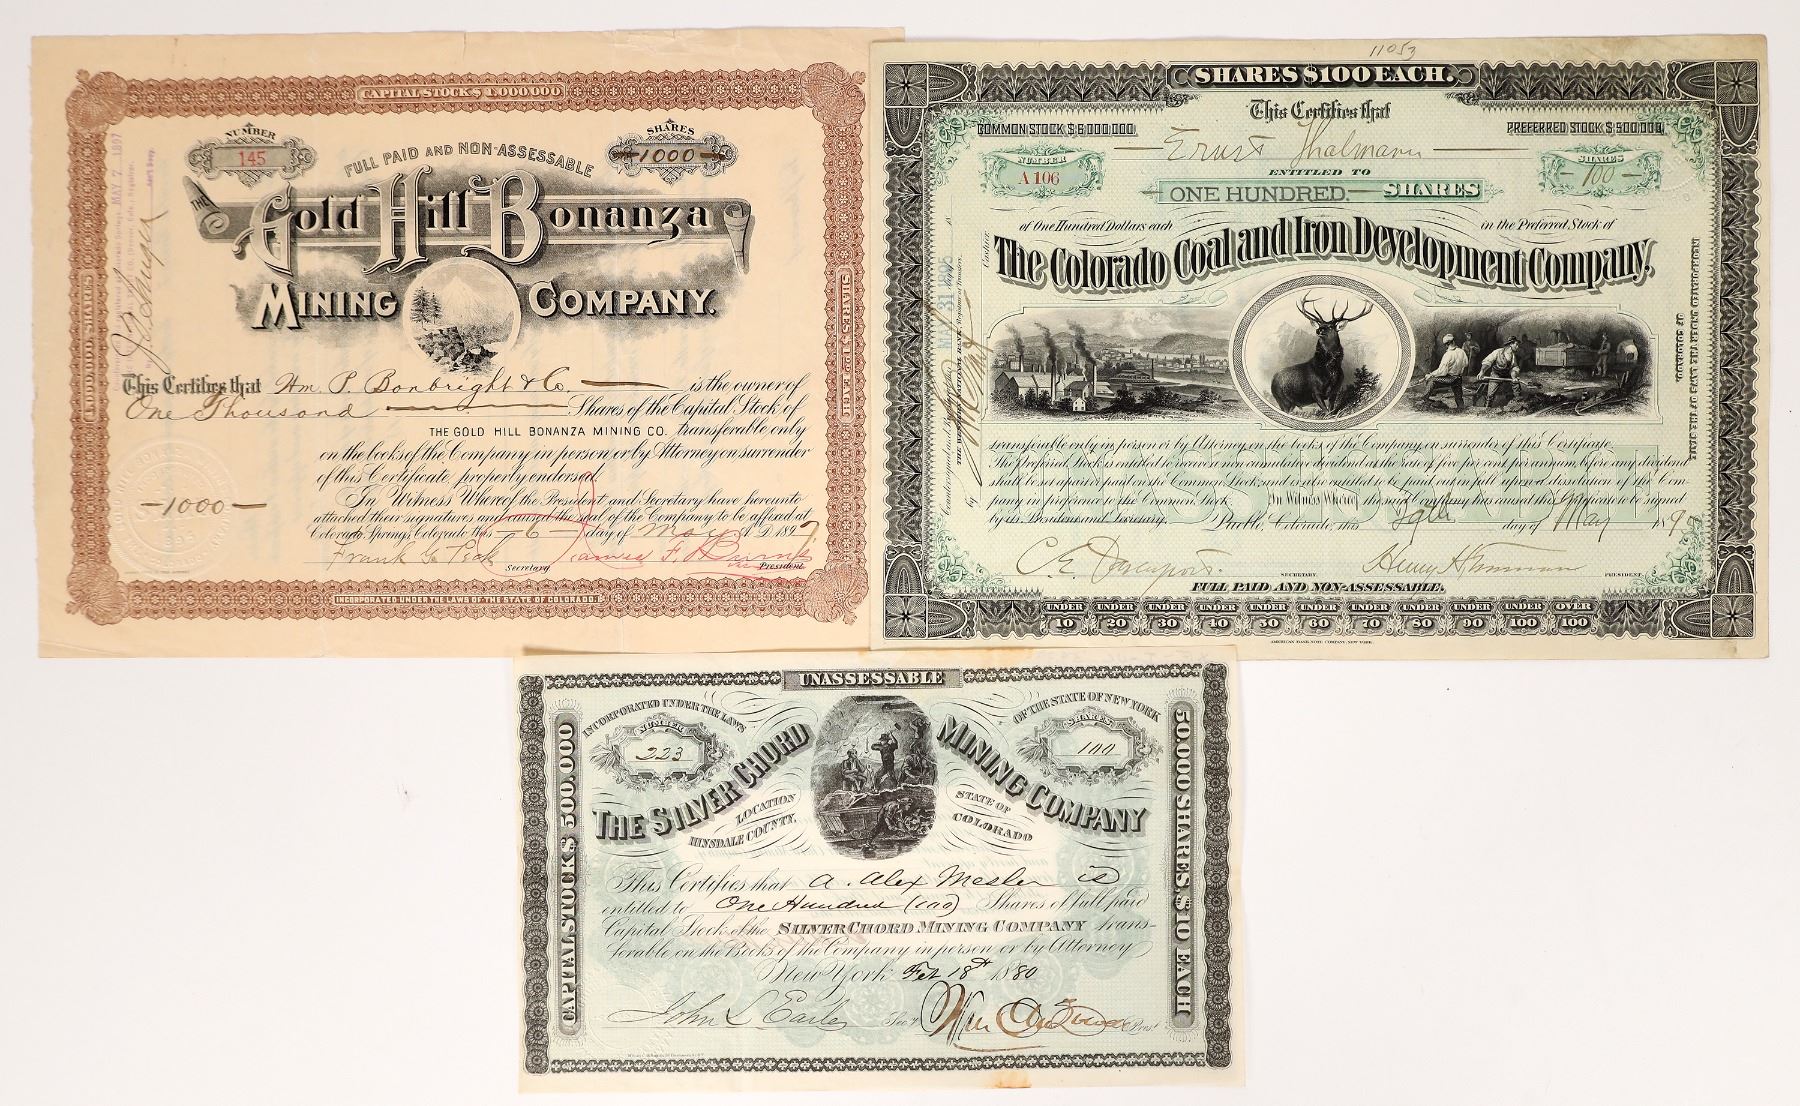 CAPITAL STOCK $ 1,000,000
NUMBER
145
SHARES
1000
FULL PAID AND NON-ASSESSABLE
THE Gold Hill Bonanza
MINING COMPANY.
This Certifies that Wm. P. Bonbright & Co. is the owner of
One Thousand Shares of the Capital Stock of
THE GOLD HILL BONANZA MINING CO. transferable only
on the books of the Company in person or by Attorney on surrender
of this Certificate, properly endorsed.
In Witness Whereof the President and Secretary have hereunto
attached their signatures and caused the seal of the Company to be affixed at
Colorado Springs, Colorado, this 6 day of May A.D. 1897.
Frank G. Peck Secretary James F. Burns President
-1000-
INCORPORATED UNDER THE LAWS OF THE STATE OF COLORADO.
1,000,000 SHARES
SHARES $1.00 EACH
MAY 7 1897
11053
SHARES $100 EACH.
This Certifies that
COMMON STOCK $ 6,000,000.
PREFERRED STOCK $ 500,000.
Ernst Thalmann
NUMBER
A 106
SHARES
-100-
ENTITLED TO
ONE HUNDRED SHARES
of One Hundred Dollars each in the Preferred Stock of
The Colorado Coal and Iron Development Company.
transferable only in person or by Attorney on the books of the Company, on surrender of this Certificate.
The Preferred Stock is entitled to receive a non cumulative dividend at the rate of five per cent. per annum, before any dividend
shall be set apart or paid on the Common Stock and is also entitled to be paid out in full upon a dissolution of the Com-
pany in preference to the Common Stock. In Witness Whereof the said Company has caused this Certificate to be signed
by its President and Secretary. Pueblo, Colorado, this 29th day of May 189
C. E. Davenport. SECRETARY. PRESIDENT.
FULL PAID AND NON-ASSESSABLE.
UNDER 10 UNDER 20 UNDER 30 UNDER 40 UNDER 50 UNDER 60 UNDER 70 UNDER 80 UNDER 90 UNDER 100 OVER 100
AMERICAN BANK NOTE COMPANY, NEW YORK.
INCORPORATED UNDER THE LAWS OF THE STATE
OF COLORADO.
UNASSESSABLE
INCORPORATED UNDER THE LAWS OF THE STATE OF NEW YORK
NUMBER
223
SHARES
100
THE SILVER CHORD MINING COMPANY
LOCATION
HINSDALE COUNTY.
STATE OF
COLORADO
This Certifies that A. Alex Mesler is
entitled to One Hundred (100) Shares of full paid
Capital Stock of the SILVER CHORD MINING COMPANY trans-
ferable on the Books of the Company in person or by Attorney
New York Feb 18th 1880
John L Earley Sec'y Prest
CAPITAL STOCK $ 500,000
50,000 SHARES, $10 EACH